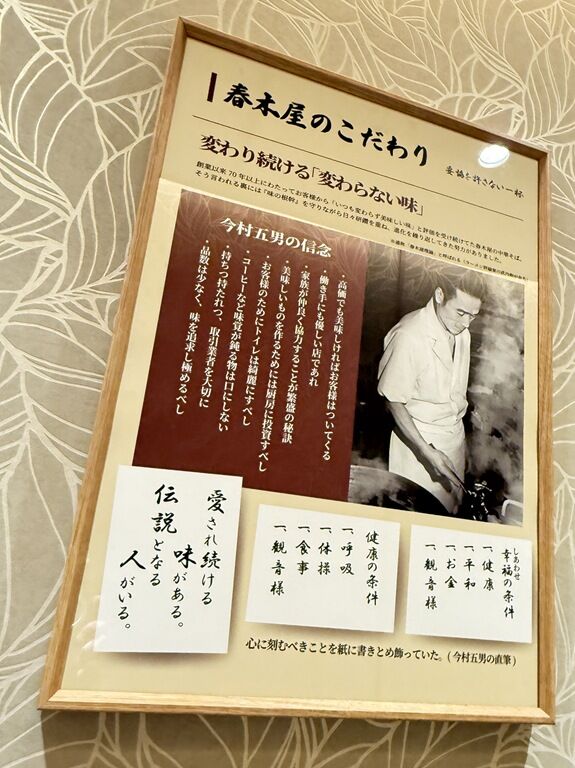 春木屋のこだわり
妥協を許さない一杯
変わり続ける「変わらない味」
創業以来70年以上にわたってお客様から「いつも変わらず美味しい味」と評価を受け続けてた春木屋の中華そば。
そう言われる裏には『味の根幹』を守りながら日々研鑽を重ね、進化を繰り返してきた努力がありました。
今村五男の信念
・高価でも美味しければお客様はついてくる
・働き手にも優しい店であれ
・家族が仲良く協力することが繁盛の秘訣
・美味しいものを作るためには厨房に投資すべし
・お客様のためにトイレは綺麗にすべし
・コーヒーなど味覚が鈍る物は口にしない
・持ちつ持たれつ、取引業者を大切に
・品数は少なく、味を追求し極めるべし
しあわせ
幸福の条件
一、健康
一、平和
一、お金
一、観音様
健康の条件
一、呼吸
一、体操
一、食事
一、観音様
愛され続ける
味がある。
伝説となる
人がいる。
心に刻むべきことを紙に書きとめ飾っていた。(今村五男の直筆)